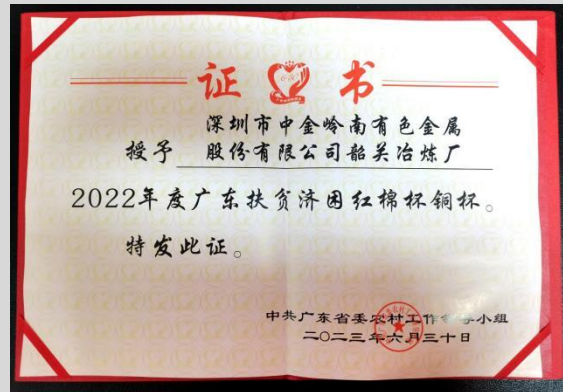 证书
深圳市中金岭南有色金属
授予 股份有限公司韶关冶炼厂
2022年度广东扶贫济困红棉杯铜杯。
特发此证。
中共广东省委农村工作领导小组
二〇二三年六月三十日